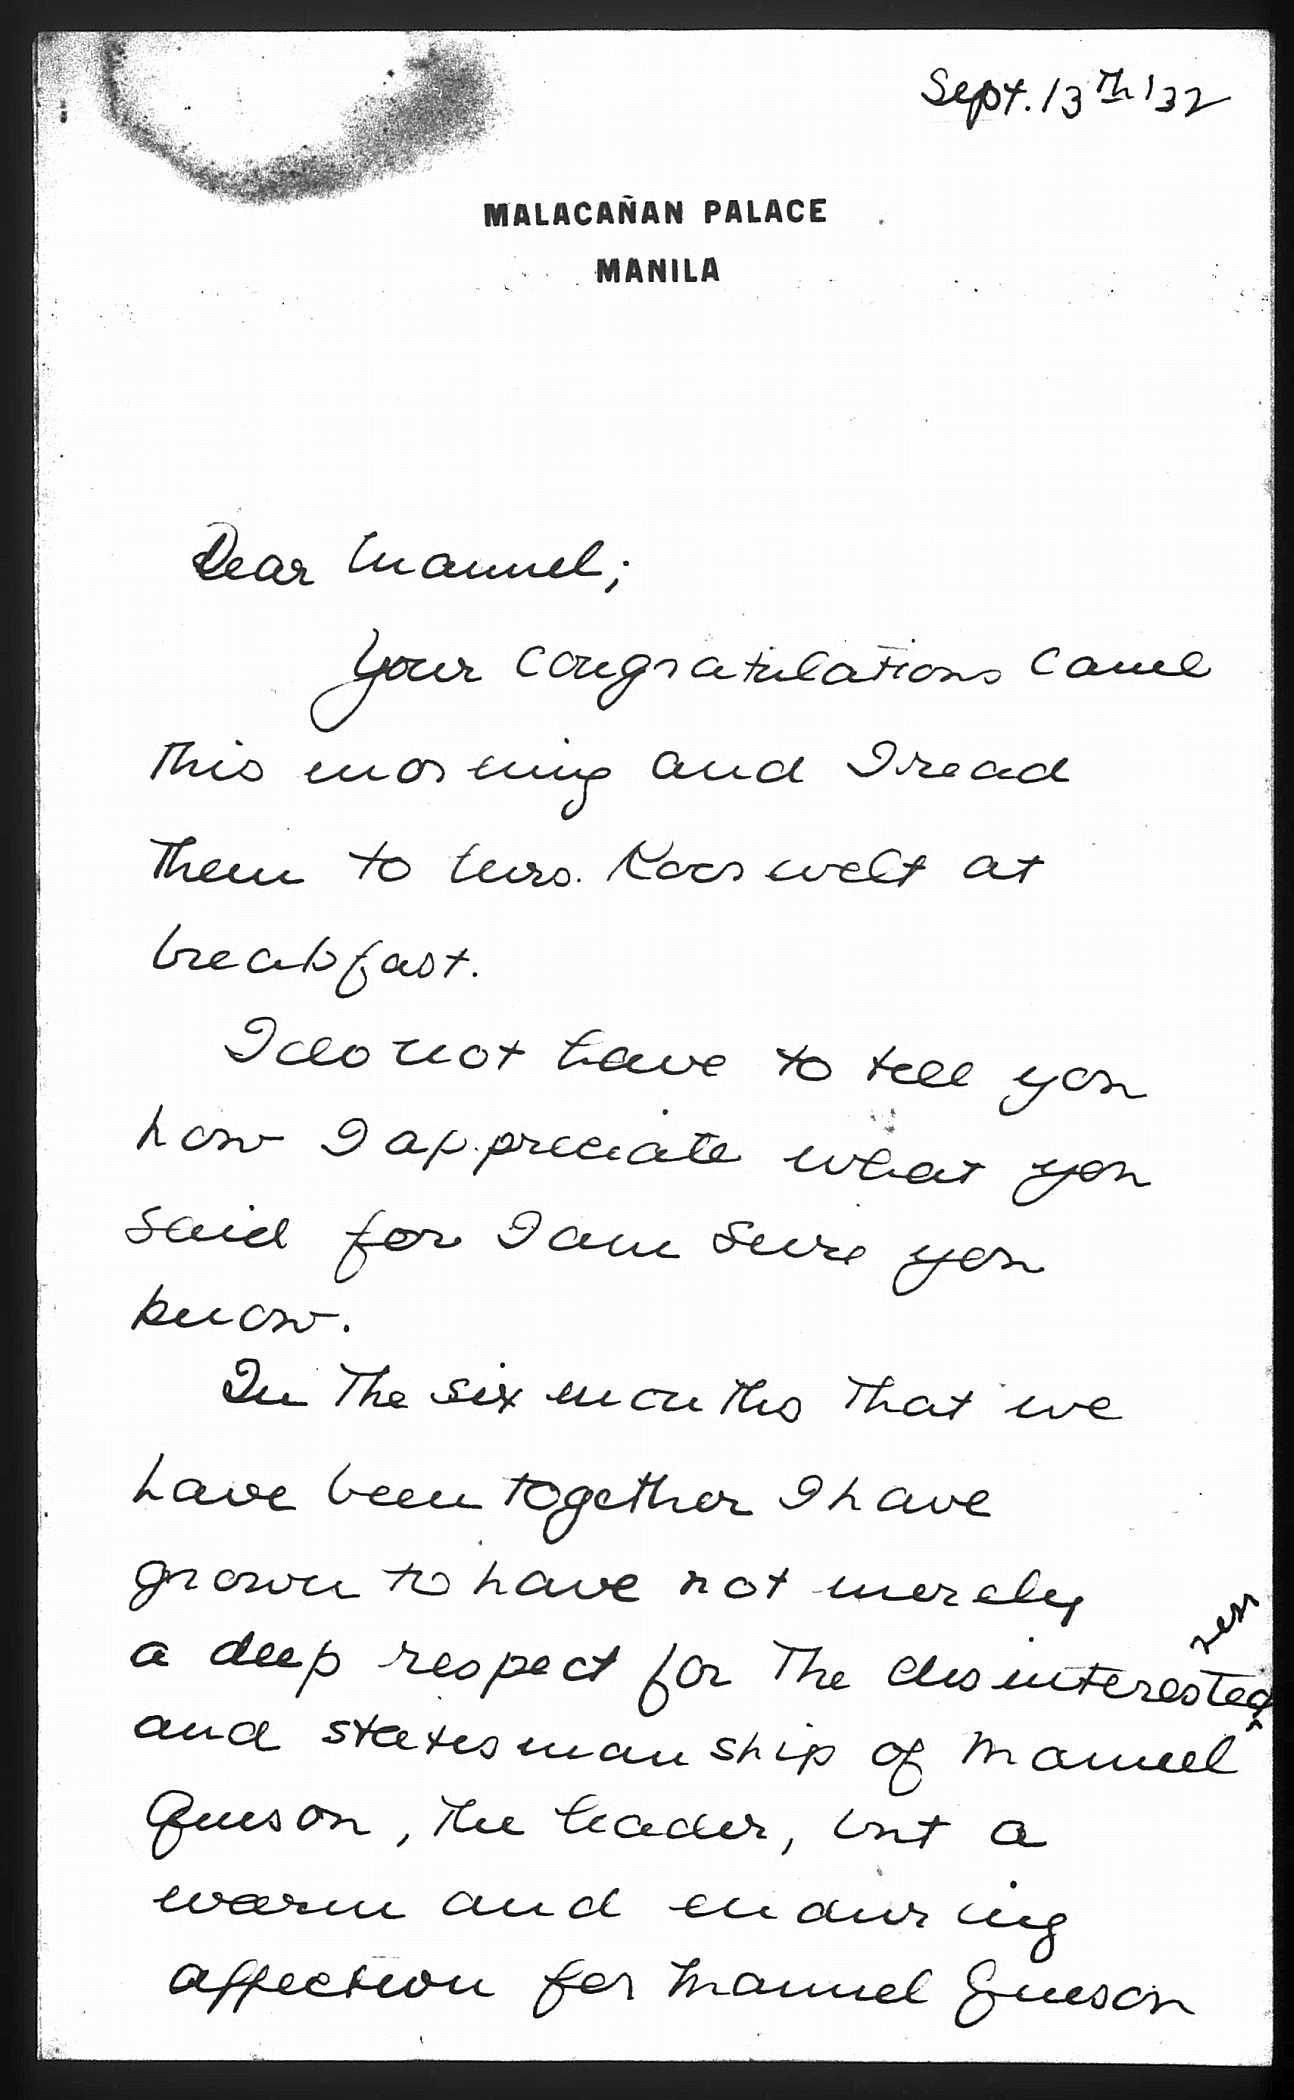 Sept. 13th '32
MALACAÑAN PALACE
MANILA
Dear Manuel;
Your congratulations came
this morning and I read
them to Mrs. Roosevelt at
breakfast.
I do not have to tell you
how I appreciate what you
said for I am sure you
know.
In the six months that we
have been together I have
grown to have not merely
a deep respect for the disinterestedness
and statesmanship of Manuel
Queson, the leader, but a
warm and enduring
affection for Manuel Queson